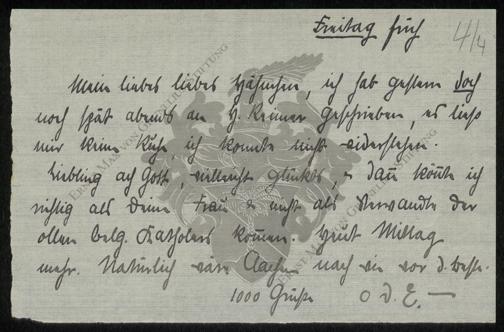 Freitag früh 4/4
Mein liebes liebes Häschen, ich hab gestern doch
noch spät abends an H. Reimer geschrieben, es liess
mir keine Ruh, ich konnte nicht widerstehen.
Liebling ach Gott, vielleicht glückts, & dann könnte ich
richtig als Deine Frau & nicht als Verwandte der
ollen belg. Katholens kommen. Heut Mittag
mehr. Natürlich wäre Aachen nach wie vor d. beste.
1000 Grüße
O D. E. —
ERNST MAX VON GRUNELIUS-STIFTUNG
ERNST MAX VON GRUNELIUS-STIFTUNG